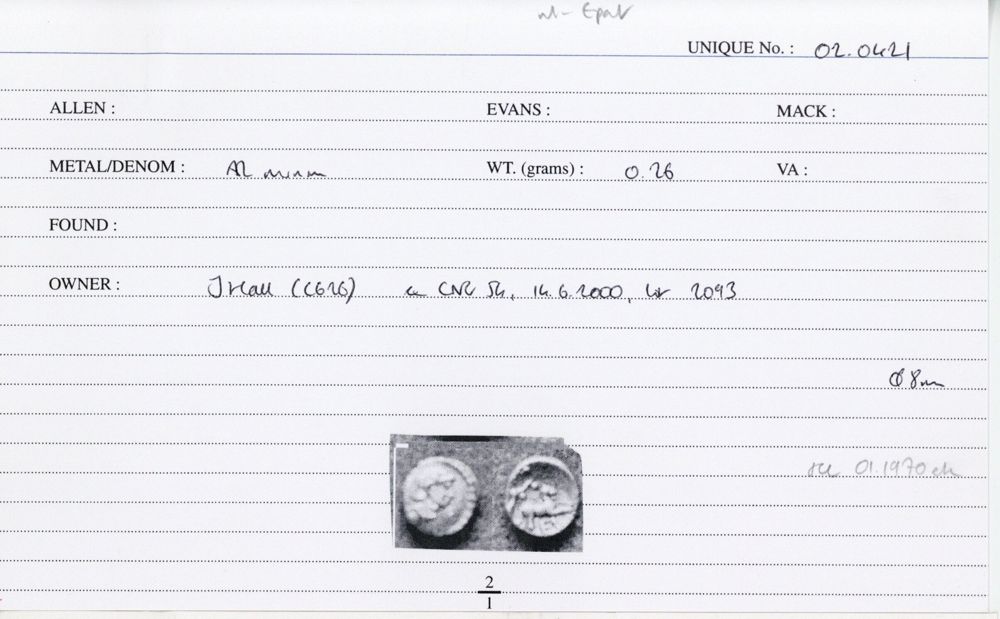 UNIQUE No. : 02.0421
ALLEN : EVANS : MACK :
METAL/DENOM : AR minim WT. (grams) : 0.26 VA :
FOUND :
OWNER : J Hall (CG26) ex CNG 54, 14.6.2000, lot 2093
Ø 8mm
see 01.1970
2
1